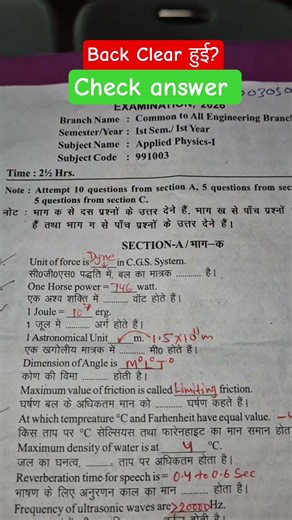 Back Clear हुई?
Check answer
EXAMINATION, 2026
Branch Name : Common to All Engineering Branch
Semester/Year : Ist Sem./ Ist Year
Subject Name : Applied Physics-I
Subject Code : 991003
Time : 2½ Hrs.
Note : Attempt 10 questions from section A, 5 questions from sec
5 questions from section C.
नोट : भाग क से दस प्रश्नों के उत्तर देने हैं, भाग ख से पाँच प्रश्नों
हैं तथा भाग ग से पाँच प्रश्नों के उत्तर देने हैं।
SECTION-A / भाग–क
Unit of force is Dyne in C.G.S. System.
सी०जी०एस० पद्धति में, बल का मात्रक ............ है।
One Horse power = 746 watt.
एक अश्व शक्ति में ............ वॉट होते हैं।
1 Joule = 10⁷ erg.
1 जूल में ............ अर्ग होते हैं।
1 Astronomical Unit ............ m. 1.5×10¹¹m
एक खगोलीय मात्रक में ............ मी० होते हैं।
Dimension of Angle is M⁰L⁰T⁰
कोण की विमा ............ होती है।
Maximum value of friction is called Limiting friction.
घर्षण बल के अधिकतम मान को ............ घर्षण कहते हैं।
At which tempreature °C and Farhenheit have equal value. -4
किस ताप पर °C सेल्सियस तथा फारेनहाइट का मान समान होता
Maximum density of water is at 4 °C.
जल का घनत्व, ............ ताप पर अधिकतम होता है।
Reverberation time for speech is = 0.4 to 0.6 Sec
भाषण के लिए अनुरणन काल का मान ............ होता है।
Frequency of ultrasonic waves are >20000Hz.